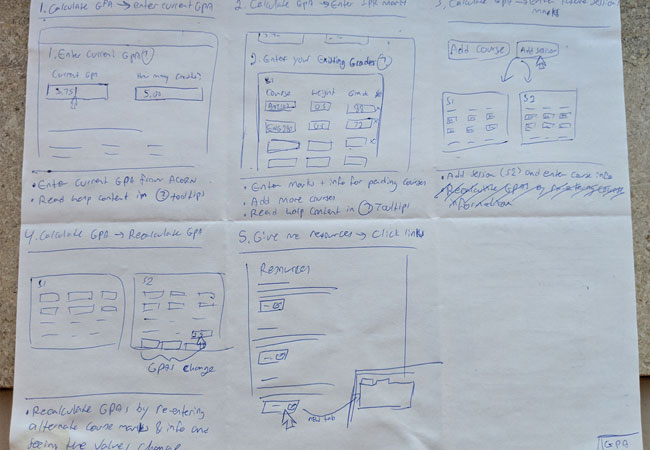 1. Calculate GPA → Enter current GPA
1. Enter Current GPA (?)
Current GPA
How many credits?
3.75
5.00
• Enter current GPA from Acorn
• Read help content in (?) tooltips
2. Calculate GPA → Enter
2. Enter your Existing Grades (?)
S1
Course
Weight
Grade
0.5
0.5
72
• Enter marks + info for pending courses
• Add more courses
• Read help content in (?) Tooltips
3. Calculate GPA → Enter future session
marks
Add Course
Add session
S1
S2
• Add session (S2) and enter course info
• Recalculate GPAs by
information
4. Calculate GPA → Recalculate GPA
S1
S2
GPAs change
• Recalculate GPAs by re-entering
alternate course marks & info and
seeing the values change
5. Give me resources → Click links
Resources
new tab
GPA